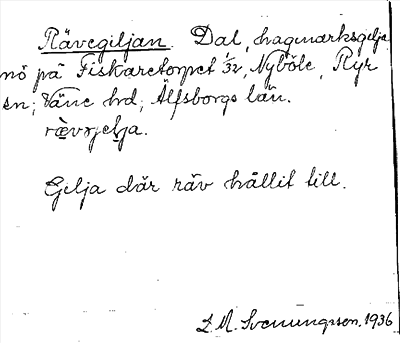 Rävegiljan. Dal, hagmarksgilja
nö på Fiskaretorpet 1/32, Nyböle, Ryr
sn; Väne hrd; Älfsborgs län.
Gilja där räv hållit till.
L. M. Svenungsson. 1936